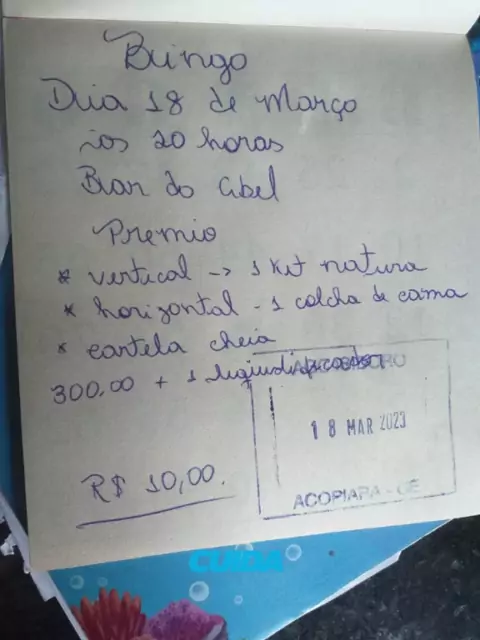 Bingo
Dia 18 de Março
às 20 horas
Bar do Abel
Premio
* vertical -> 1 Kit natura
* horizontal - 1 colcha de cama
* cartela cheia
300,00 + 1
18 MAR 2023
ACOPIARA - CE
R$ 10,00.